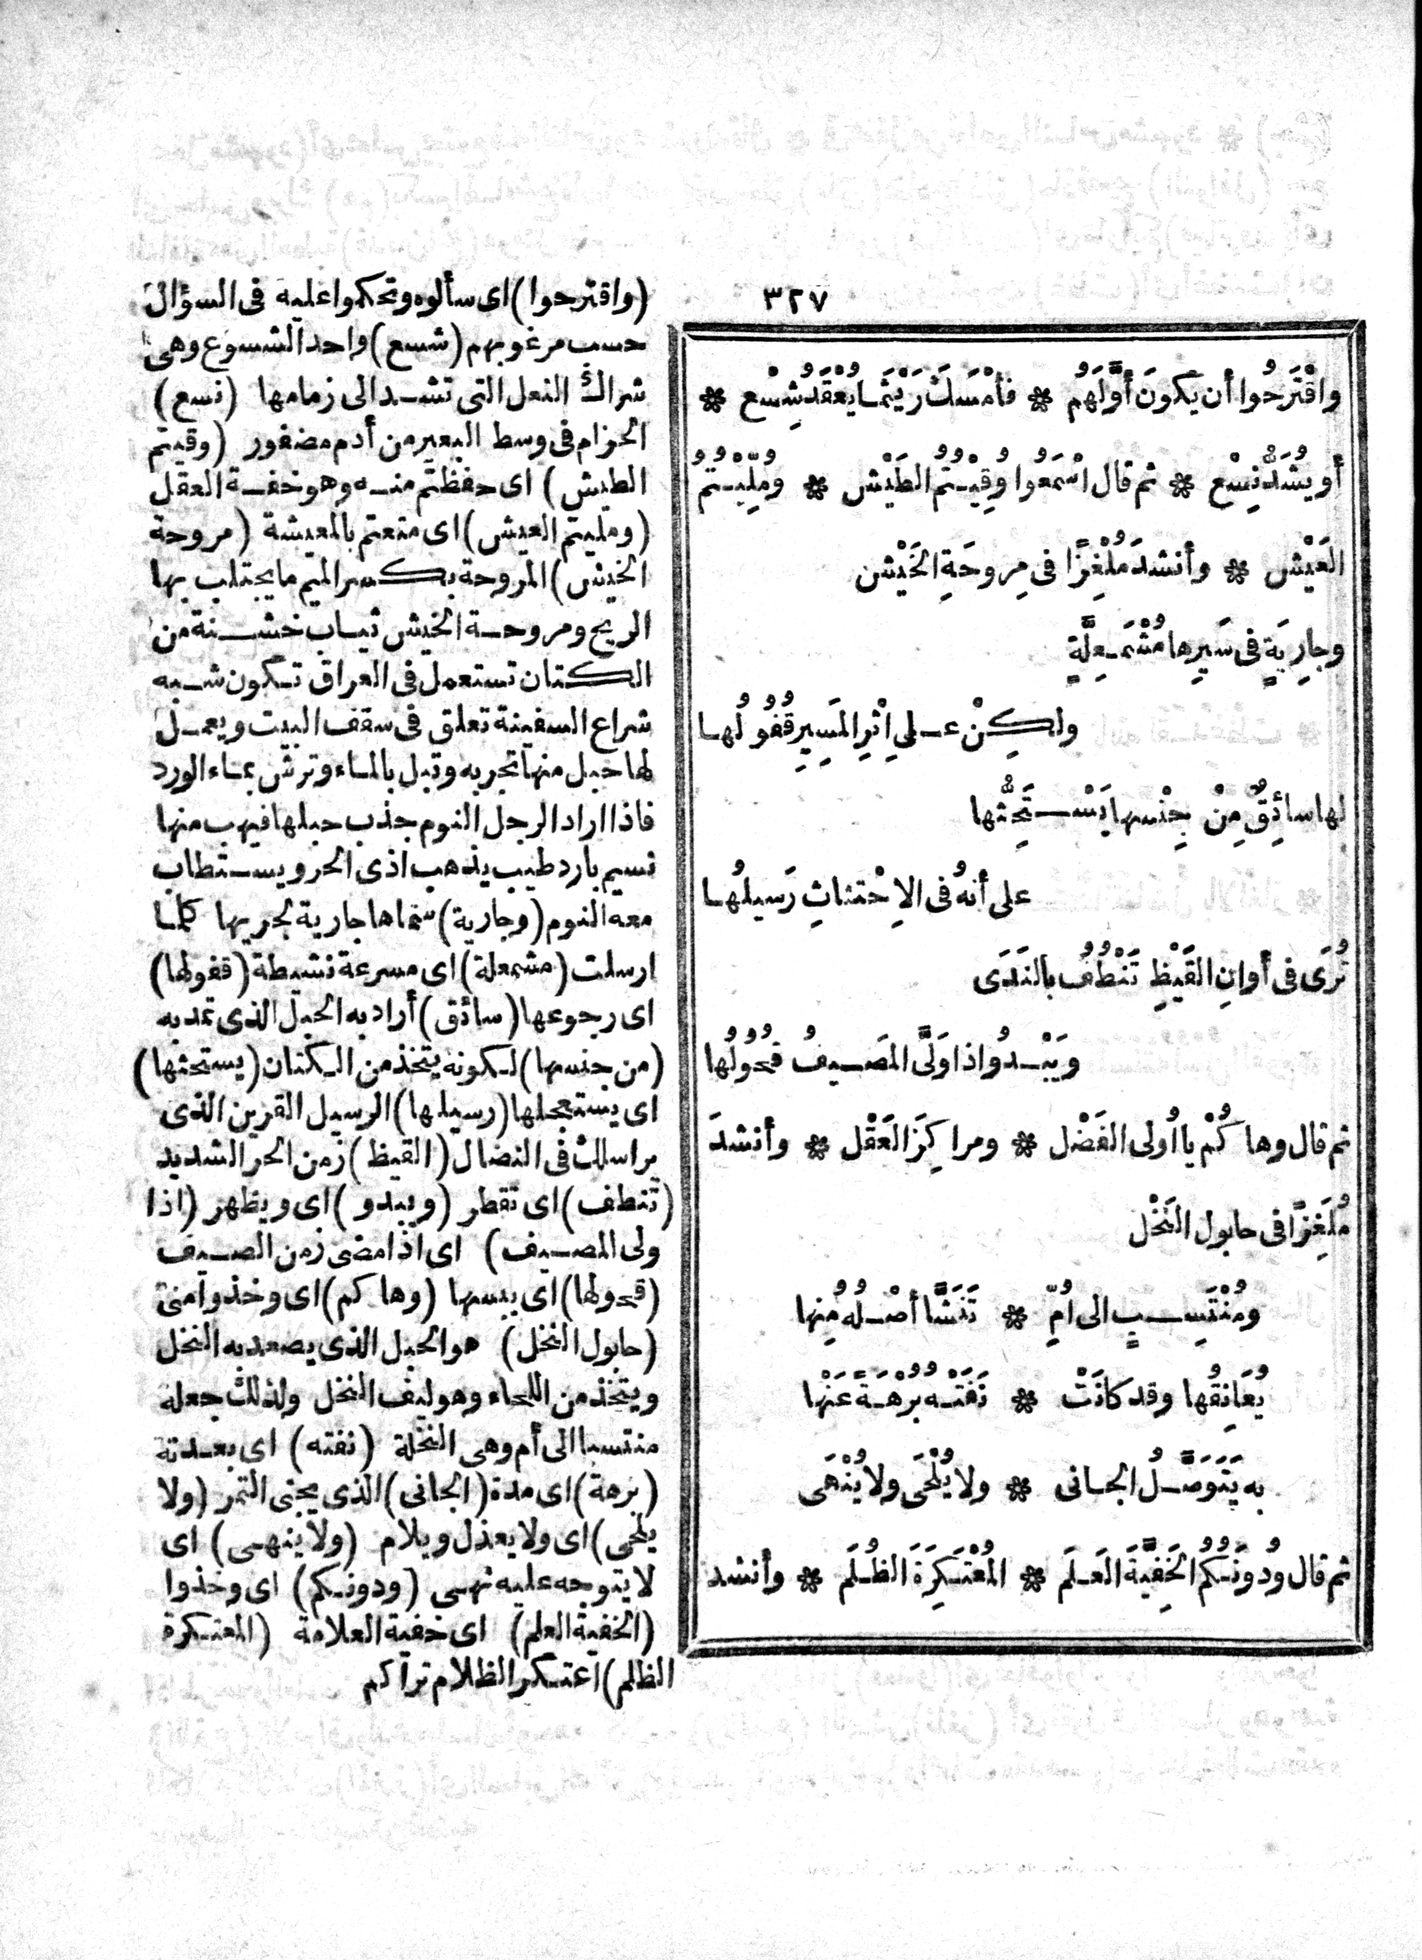 ٣٢٧
واقْتَرَحُوا أن يكونَ أوَّلَهُم ❀ فأمْسَكَ رَيْثَما يُعْقَدُ شِسْع ❀
أو يُشَدُّ نِسْع ❀ ثم قال اسْمَعُوا وُقِيْتُمُ الطَيْش ❀ ومُلِّيْتُمُ
العَيْش ❀ وأنشدَ مُلْغِزًا فى مِروحَةِ الخَيْش
وجارِيَةٍ فى سَيرِها مُشْمَعِلَّةٍ
ولكِنْ على اثْرِ المَسِيرِ قُفُولُها
لها سائِقٌ مِنْ جِنْسِها يَسْتَحِثُّها
على أنهُ فى الاِحْتثاثِ رَسيلُها
تُرَى فى أوانِ القَيْظِ تَنْطُفُ بالنَدَى
ويَبْدُو اذا وَلَّى المَصيفُ قُحُولُها
ثم قال وها كُمْ يا أُولى الفَضْل ❀ ومراكِزَ العَقْل ❀ وأنشدَ
مُلغِزًا فى حابول النَخْل
ومُنْتَسِبٍ الى اُمّ ❀ تَنَشَّا أصْلُهُ مِنها
يُعَانِقُها وقد كانَتْ ❀ نَفَتْهُ بُرْهَةً عَنْها
به يَتَوَصَّلُ الجانى ❀ ولا يُلْحَى ولا يُنْهَى
ثم قال ودُونَكُمُ الخَفِيَّةَ العَلَم ❀ المُعْتَكِرَةَ الظُلَم ❀ وأنشد
(واقترحوا) اى سألوه وتحكموا عليه فى السؤال
حسب مرغوبهم (شسع) واحد الشسوع وهى
شراك النعل التى تشد الى زمامها (نسع)
الحزام فى وسط البعير من أدم مضفور (وقيتم
الطيش) اى حفظتم منه وهو خفة العقل
(ومليتم العيش) اى متعتم بالمعيشة (مروحة
الخيش) المروحة بكسر الميم ما يجتلب بها
الريح ومروحة الخيش ثياب خشنة من
الكتان تستعمل فى العراق تكون شبه
شراع السفينة تعلق فى سقف البيت ويعمل
لها حبل منها تجر به وتبل بالماء وترش بماء الورد
فاذا اراد الرجل النوم جذب حبلها فيهب منها
نسيم بارد طيب يذهب اذى الحر ويستطاب
معه النوم (وجارية) سماها جارية لجريها كلما
ارسلت (مشمعلة) اى مسرعة نشيطة (قفولها)
اى رجوعها (سائق) أراد به الحبل الذى تمد به
(من جنسها) لكونه يتخذ من الكتان (يستحثها)
اى يستعجلها (رسيلها) الرسيل القرين الذى
يراسلك فى النضال (القيظ) زمن الحر الشديد
(تنطف) اى تقطر (ويبدو) اى ويظهر (اذا
ولى المصيف) اى اذا مضى زمن الصيف
(قحولها) اى يبسها (وها كم) اى وخذوا منى
(حابول النخل) هو الحبل الذى يصعد به النخل
ويتخذ من اللحاء وهو ليف النخل ولذلك جعله
منتسبا الى أم وهى النخلة (نفته) اى بعدته
(برهة) اى مدة (الجانى) الذى يجنى التمر (ولا
يلحى) اى ولا يعذل ويلام (ولا ينهى) اى
لا يتوجه عليه نهى (ودونكم) اى وخذوا
(الخفية العلم) اى خفية العلامة (المعتكرة
الظلم) اعتكر الظلام تراكم